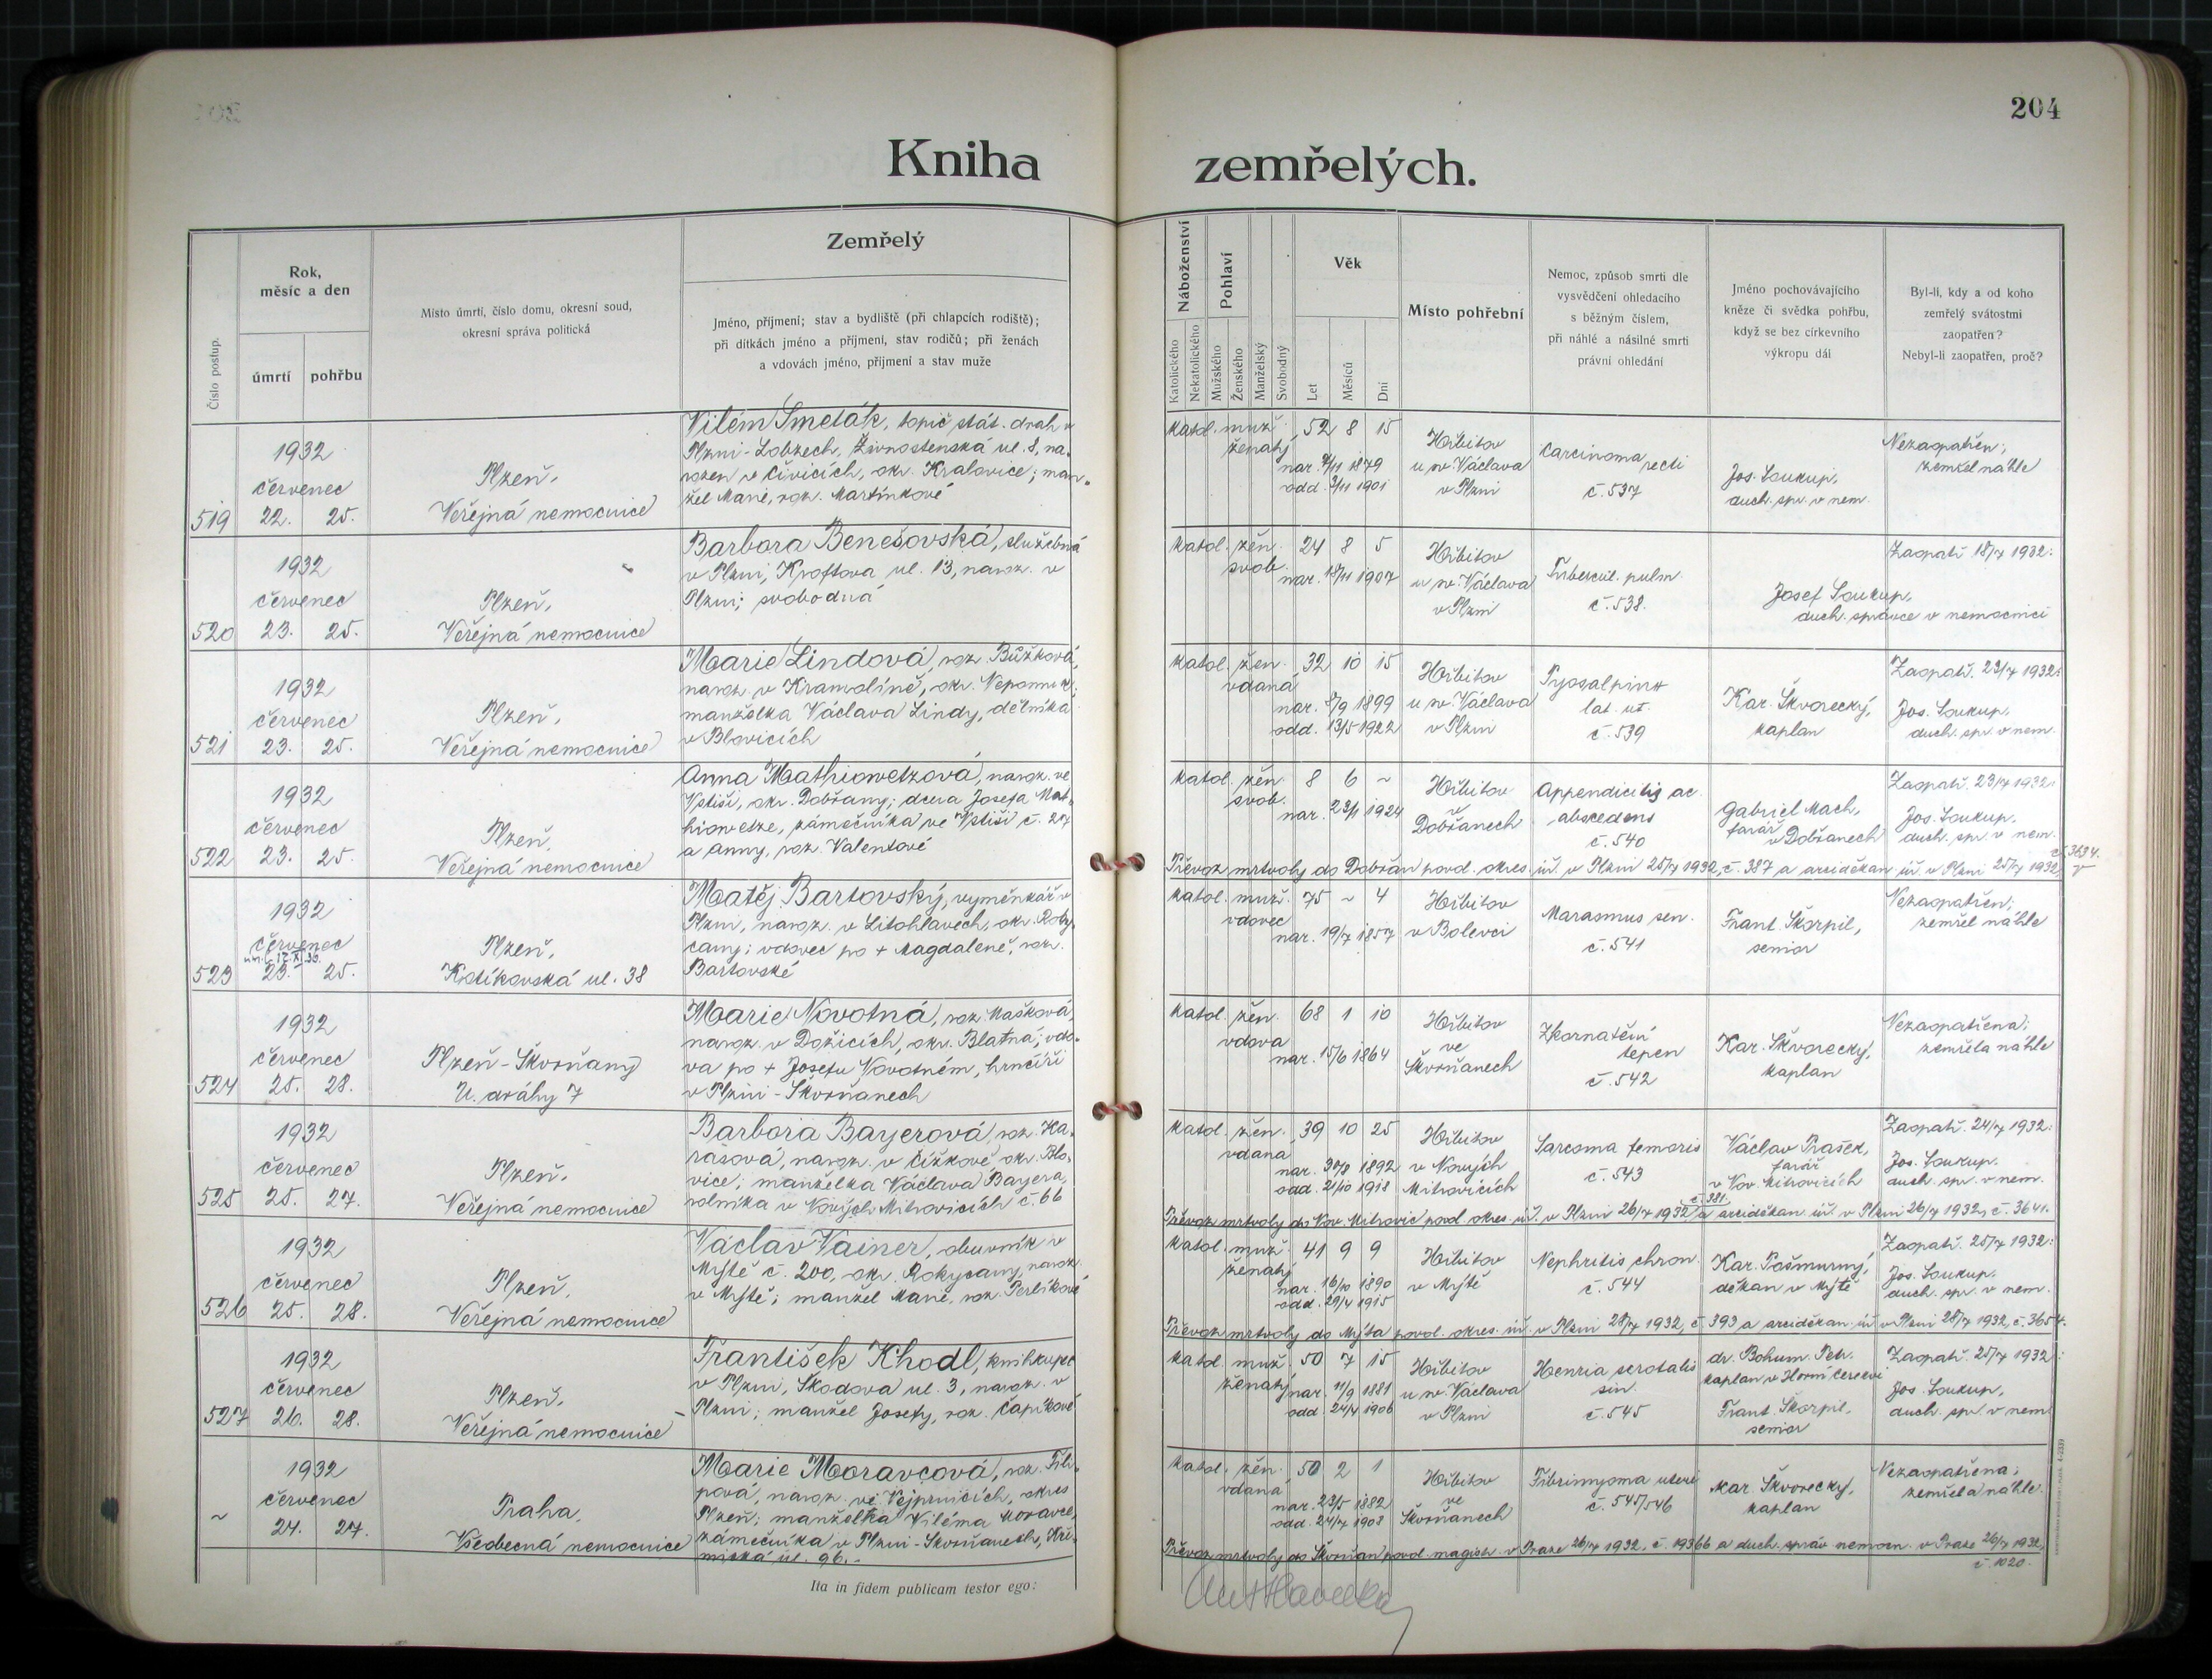 204
Kniha zemřelých.
Číslo postup.
Rok,
měsíc a den
úmrtí pohřbu
Místo úmrtí, číslo domu, okresní soud,
okresní správa politická
Zemřelý
Jméno, příjmení; stav a bydliště (při chlapcích rodiště);
při dítkách jméno a příjmení, stav rodičů; při ženách
a vdovách jméno, příjmení a stav muže
Náboženství
Katolického
Nekatolického
Pohlaví
Mužského
Ženského
Manželský
Svobodný
Věk
Let
Měsíců
Dní
Místo pohřební
Nemoc, způsob smrti dle
vysvědčení ohledacího
s běžným číslem,
při náhlé a násilné smrti
právní ohledání
Jméno pochovávajícího
kněze či svědka pohřbu,
když se bez církevního
výkropu dál
Byl-li, kdy a od koho
zemřelý svátostmi
zaopatřen?
Nebyl-li zaopatřen, proč?
519
1932
červenec
22. 25.
Plzeň,
Veřejná nemocnice
Vilém Smeták, topič stát. drah v
Plzni-Lobzech, Živnostenská ul. 8, na-
rozen v Čivicích, okr. Kralovice; man-
žel Marie, roz. Martínkové
katol. muž. 52 8 15
ženatý
nar. 7/11 1879
odd. 3/11 1901
Hřbitov
u sv. Václava
v Plzni
Carcinoma recti
č. 537
Jos. Soukup,
duch. spr. v nem.
Nezaopatřen;
zemřel náhle
520
1932
červenec
23. 25.
Plzeň,
Veřejná nemocnice
Barbora Benešovská, služebná
v Plzni, Kroftova ul. 13, naroz. v
Plzni; svobodná
katol. žen. 24 8 5
svob.
nar. 18/11 1907
Hřbitov
u sv. Václava
v Plzni
Tubercul. pulm.
č. 538.
Josef Soukup,
duch. správce v nemocnici
Zaopatř. 18/7 1932:
521
1932
červenec
23. 25.
Plzeň,
Veřejná nemocnice
Marie Lindová, roz. Bůžková,
naroz. v Kramolíně, okr. Nepomuk;
manželka Václava Lindy, dělníka
v Blovicích
katol. žen. 32 10 15
vdaná
nar. 8/9 1899
odd. 13/5 1922
Hřbitov
u sv. Václava
v Plzni
Pyosalpinx
lat. ut.
č. 539
Kar. Škvorecký,
kaplan
Zaopatř. 23/7 1932:
Jos. Soukup,
duch. spr. v nem.
522
1932
červenec
23. 25.
Plzeň,
Veřejná nemocnice
Anna Mathiowetzová, naroz. ve
Vstiši, okr. Dobřany; dcera Josefa Mat-
hiowetze, zámečníka ve Vstiši č. 27
a Anny, roz. Valentové
katol. žen. 8 6 ~
svob.
nar. 23/1 1924
Hřbitov
v
Dobřanech
Appendicitis ac.
abscedens
č. 540
Gabriel Mach,
farář
v Dobřanech
Zaopatř. 23/7 1932:
Jos. Soukup,
duch. spr. v nem.
Převoz mrtvoly do Dobřan povol. okres. úř. v Plzni 25/7 1932, č. 387 a arciděkan. úř. v Plzni 25/7 1932, č. 3634.
523
1932
červenec
23. 25.
Plzeň,
Kotíkovská ul. 38
Matěj Bartovský, výměnkář v
Plzni, naroz. v Litohlavech, okr. Roky-
cany; vdovec po + Magdaleně, roz.
Bartovské
katol. muž. 75 ~ 4
vdovec
nar. 19/7 1857
Hřbitov
v Bolevci
Marasmus sen.
č. 541
Frant. Škorpil,
senior
Nezaopatřen;
zemřel náhle
524
1932
červenec
25. 28.
Plzeň-Skvrňany
U dráhy 7
Marie Novotná, roz. Mašková,
naroz. v Dožicích, okr. Blatná; vdo-
va po + Josefu Novotném, hrnčíři
v Plzni-Skvrňanech
katol. žen. 68 1 10
vdova
nar. 15/6 1864
Hřbitov
ve
Skvrňanech
Zkornatění
tepen
č. 542
Kar. Škvorecký,
kaplan
Nezaopatřena;
zemřela náhle
525
1932
červenec
25. 27.
Plzeň,
Veřejná nemocnice
Barbora Bayerová, roz. Ka-
rasová, naroz. v Čížkově, okr. Blo-
vice; manželka Václava Bayera,
rolníka v Nových Mitrovicích č. 66
katol. žen. 39 10 25
vdaná
nar. 30/8 1892
odd. 21/10 1918
Hřbitov
v Nových
Mitrovicích
Sarcoma femoris
č. 543
Václav Prašek,
farář
v Nov. Mitrovicích
Zaopatř. 24/7 1932:
Jos. Soukup,
duch. spr. v nem.
Převoz mrtvoly do Nov. Mitrovic povol. okres. úř. v Plzni 26/7 1932 č. 381. a arciděkan. úř. v Plzni 26/7 1932, č. 3641.
526
1932
červenec
25. 28.
Plzeň,
Veřejná nemocnice
Václav Vainer, obuvník v
Mýtě č. 200, okr. Rokycany, naroz.
v Mýtě; manžel Marie, roz. Perlíkové
katol. muž. 41 9 9
ženatý
nar. 16/10 1890
odd. 29/4 1915
Hřbitov
v Mýtě
Nephritis chron.
č. 544
Kar. Pošmurný,
děkan v Mýtě
Zaopatř. 25/7 1932:
Jos. Soukup,
duch. spr. v nem.
Převoz mrtvoly do Mýta povol. okres. úř. v Plzni 28/7 1932, č. 393 a arciděkan. úř. v Plzni 28/7 1932, č. 3654.
527
1932
červenec
26. 28.
Plzeň,
Veřejná nemocnice
František Khodl, knihkupec
v Plzni, Škodova ul. 3, naroz. v
Plzni; manžel Josefy, roz. Čapíkové
katol. muž. 50 7 15
ženatý
nar. 11/9 1881
odd. 24/4 1906
Hřbitov
u sv. Václava
v Plzni
Hernia scrotalis
sin.
č. 545
dr. Bohum. Petr.
kaplan v Horní Cerekvi
Frant. Škorpil,
senior
Zaopatř. 25/7 1932:
Jos. Soukup,
duch. spr. v nem.
~
1932
červenec
24. 27.
Praha,
Všeobecná nemocnice
Marie Moravcová, roz. Fili-
pová, naroz. ve Vejprnicích, okres
Plzeň; manželka Viléma Moravce,
zámečníka v Plzni-Skvrňanech, Kři-
mická ul. 96.-
katol. žen. 50 2 1
vdaná
nar. 23/5 1882
odd. 24/7 1908
Hřbitov
ve
Skvrňanech
Fibrimyoma uteri
č. 545/546
Kar. Škvorecký,
kaplan
Nezaopatřena;
zemřela náhle.
Převoz mrtvoly do Skvrňan povol. magistr. v Praze 26/7 1932, č. 19366 a duch. správ. nemocn. v Praze 26/7 1932,
č. 1020.
Ita in fidem publicam testor ego: